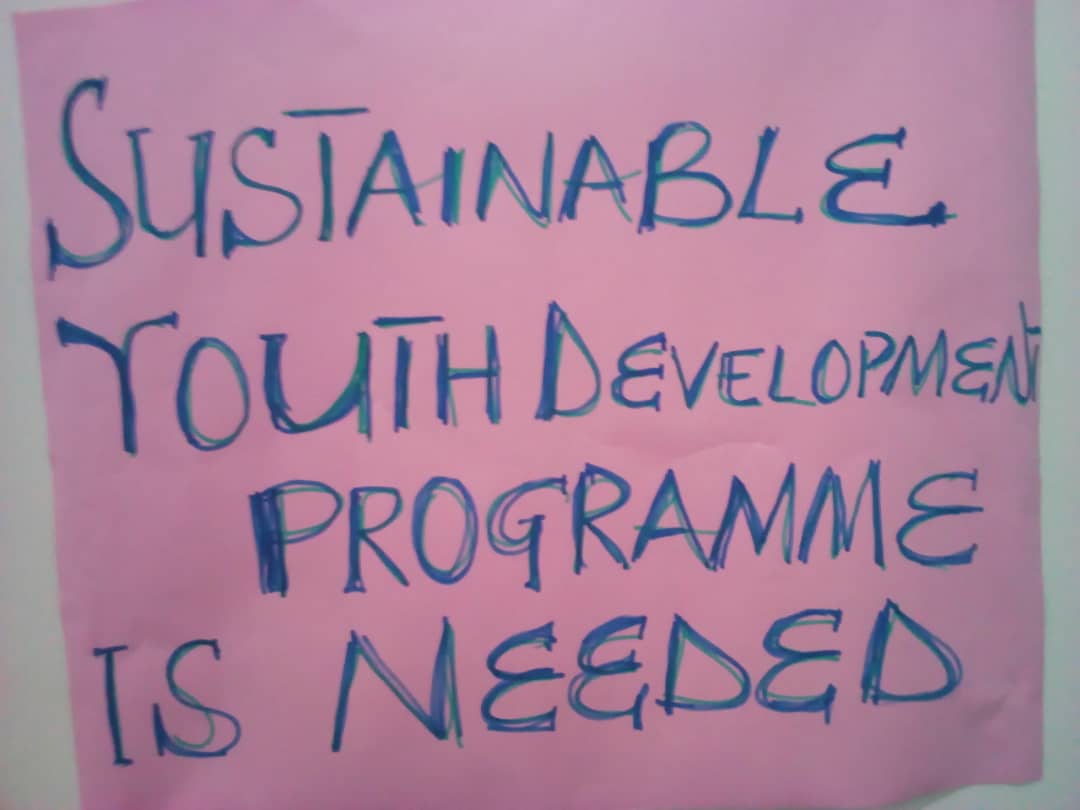 SUSTAINABLE
YOUTH DEVELOPMENT
PROGRAMME
IS NEEDED